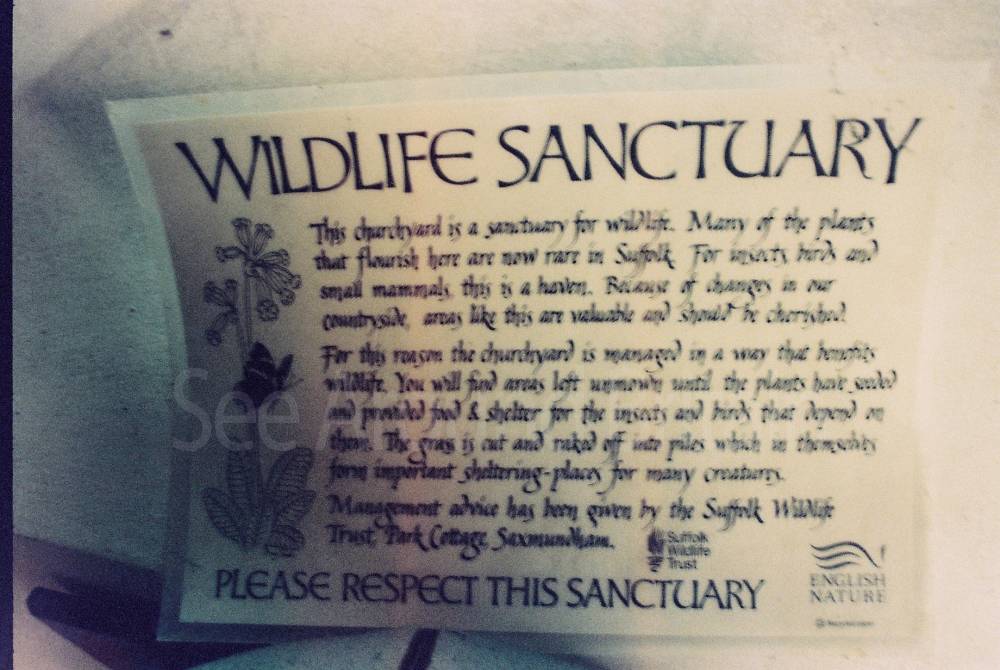 WILDLIFE SANCTUARY
This churchyard is a sanctuary for wildlife. Many of the plants
that flourish here are now rare in Suffolk. For insects, birds and
small mammals, this is a haven. Because of changes in our
countryside, areas like this are valuable and should be cherished.
For this reason the churchyard is managed in a way that benefits
wildlife. You will find areas left unmown until the plants have seeded
and provided food & shelter for the insects and birds that depend on
them. The grass is cut and raked off into piles which in themselves
form important sheltering-places for many creatures.
Management advice has been given by the Suffolk Wildlife
Trust, Park Cottage, Saxmundham.
Suffolk
Wildlife
Trust
ENGLISH
NATURE
PLEASE RESPECT THIS SANCTUARY
See